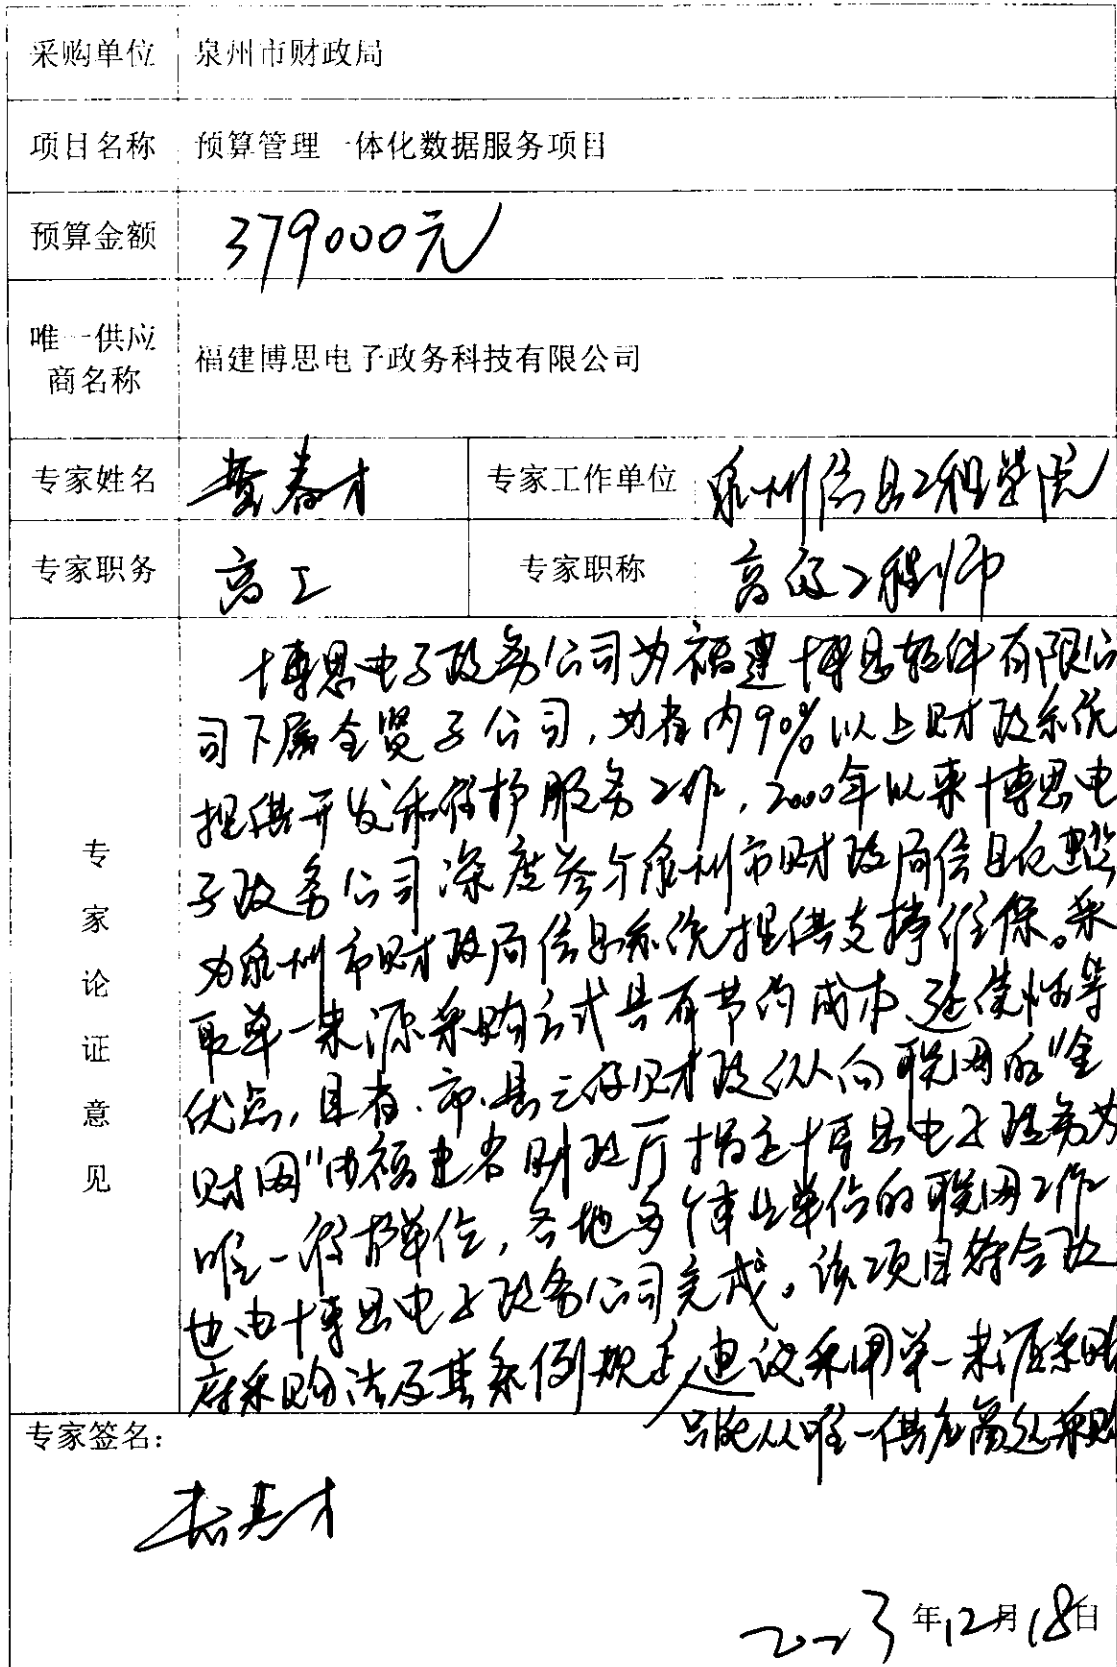 采购单位 泉州市财政局
项目名称 预算管理一体化数据服务项目
预算金额 379000元
唯一供应商名称 福建博思电子政务科技有限公司
专家姓名 春才 专家工作单位 泉州信息工程学院
专家职务 高工 专家职称 高级工程师
专家论证意见
博思电子政务公司为福建博思软件有限公
司下属全资子公司,为省内90%以上财政系统
提供开发和维护服务工作,2000年以来博思电
子政务公司深度参与泉州市财政局信息化建设
为泉州市财政局信息系统提供支撑维保。采
取单一来源采购方式具有节约成本、延续性等
优点,且省、市、县三级财政纵向联网的"金
财网"由福建省财政厅指定博思电子政务为
唯一维护单位,各地多个事业单位的联网工作
也由博思电子政务公司完成。该项目符合政
府采购法及其条例规定,建议采用单一来源采购
只能从唯一供应商处采购
专家签名:
2023年12月18日